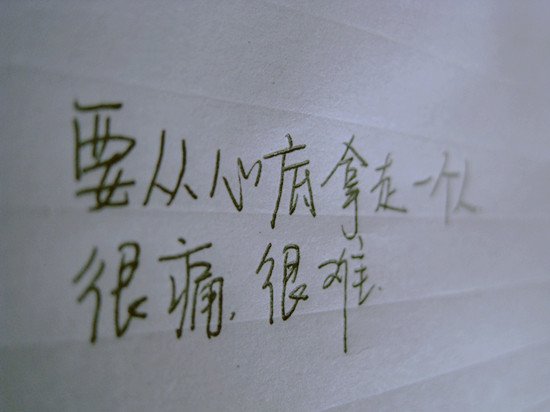 要从心底拿走一个人
很痛.很难.